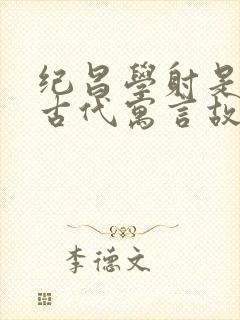 纪昌學射是
古代寓言故
李德文